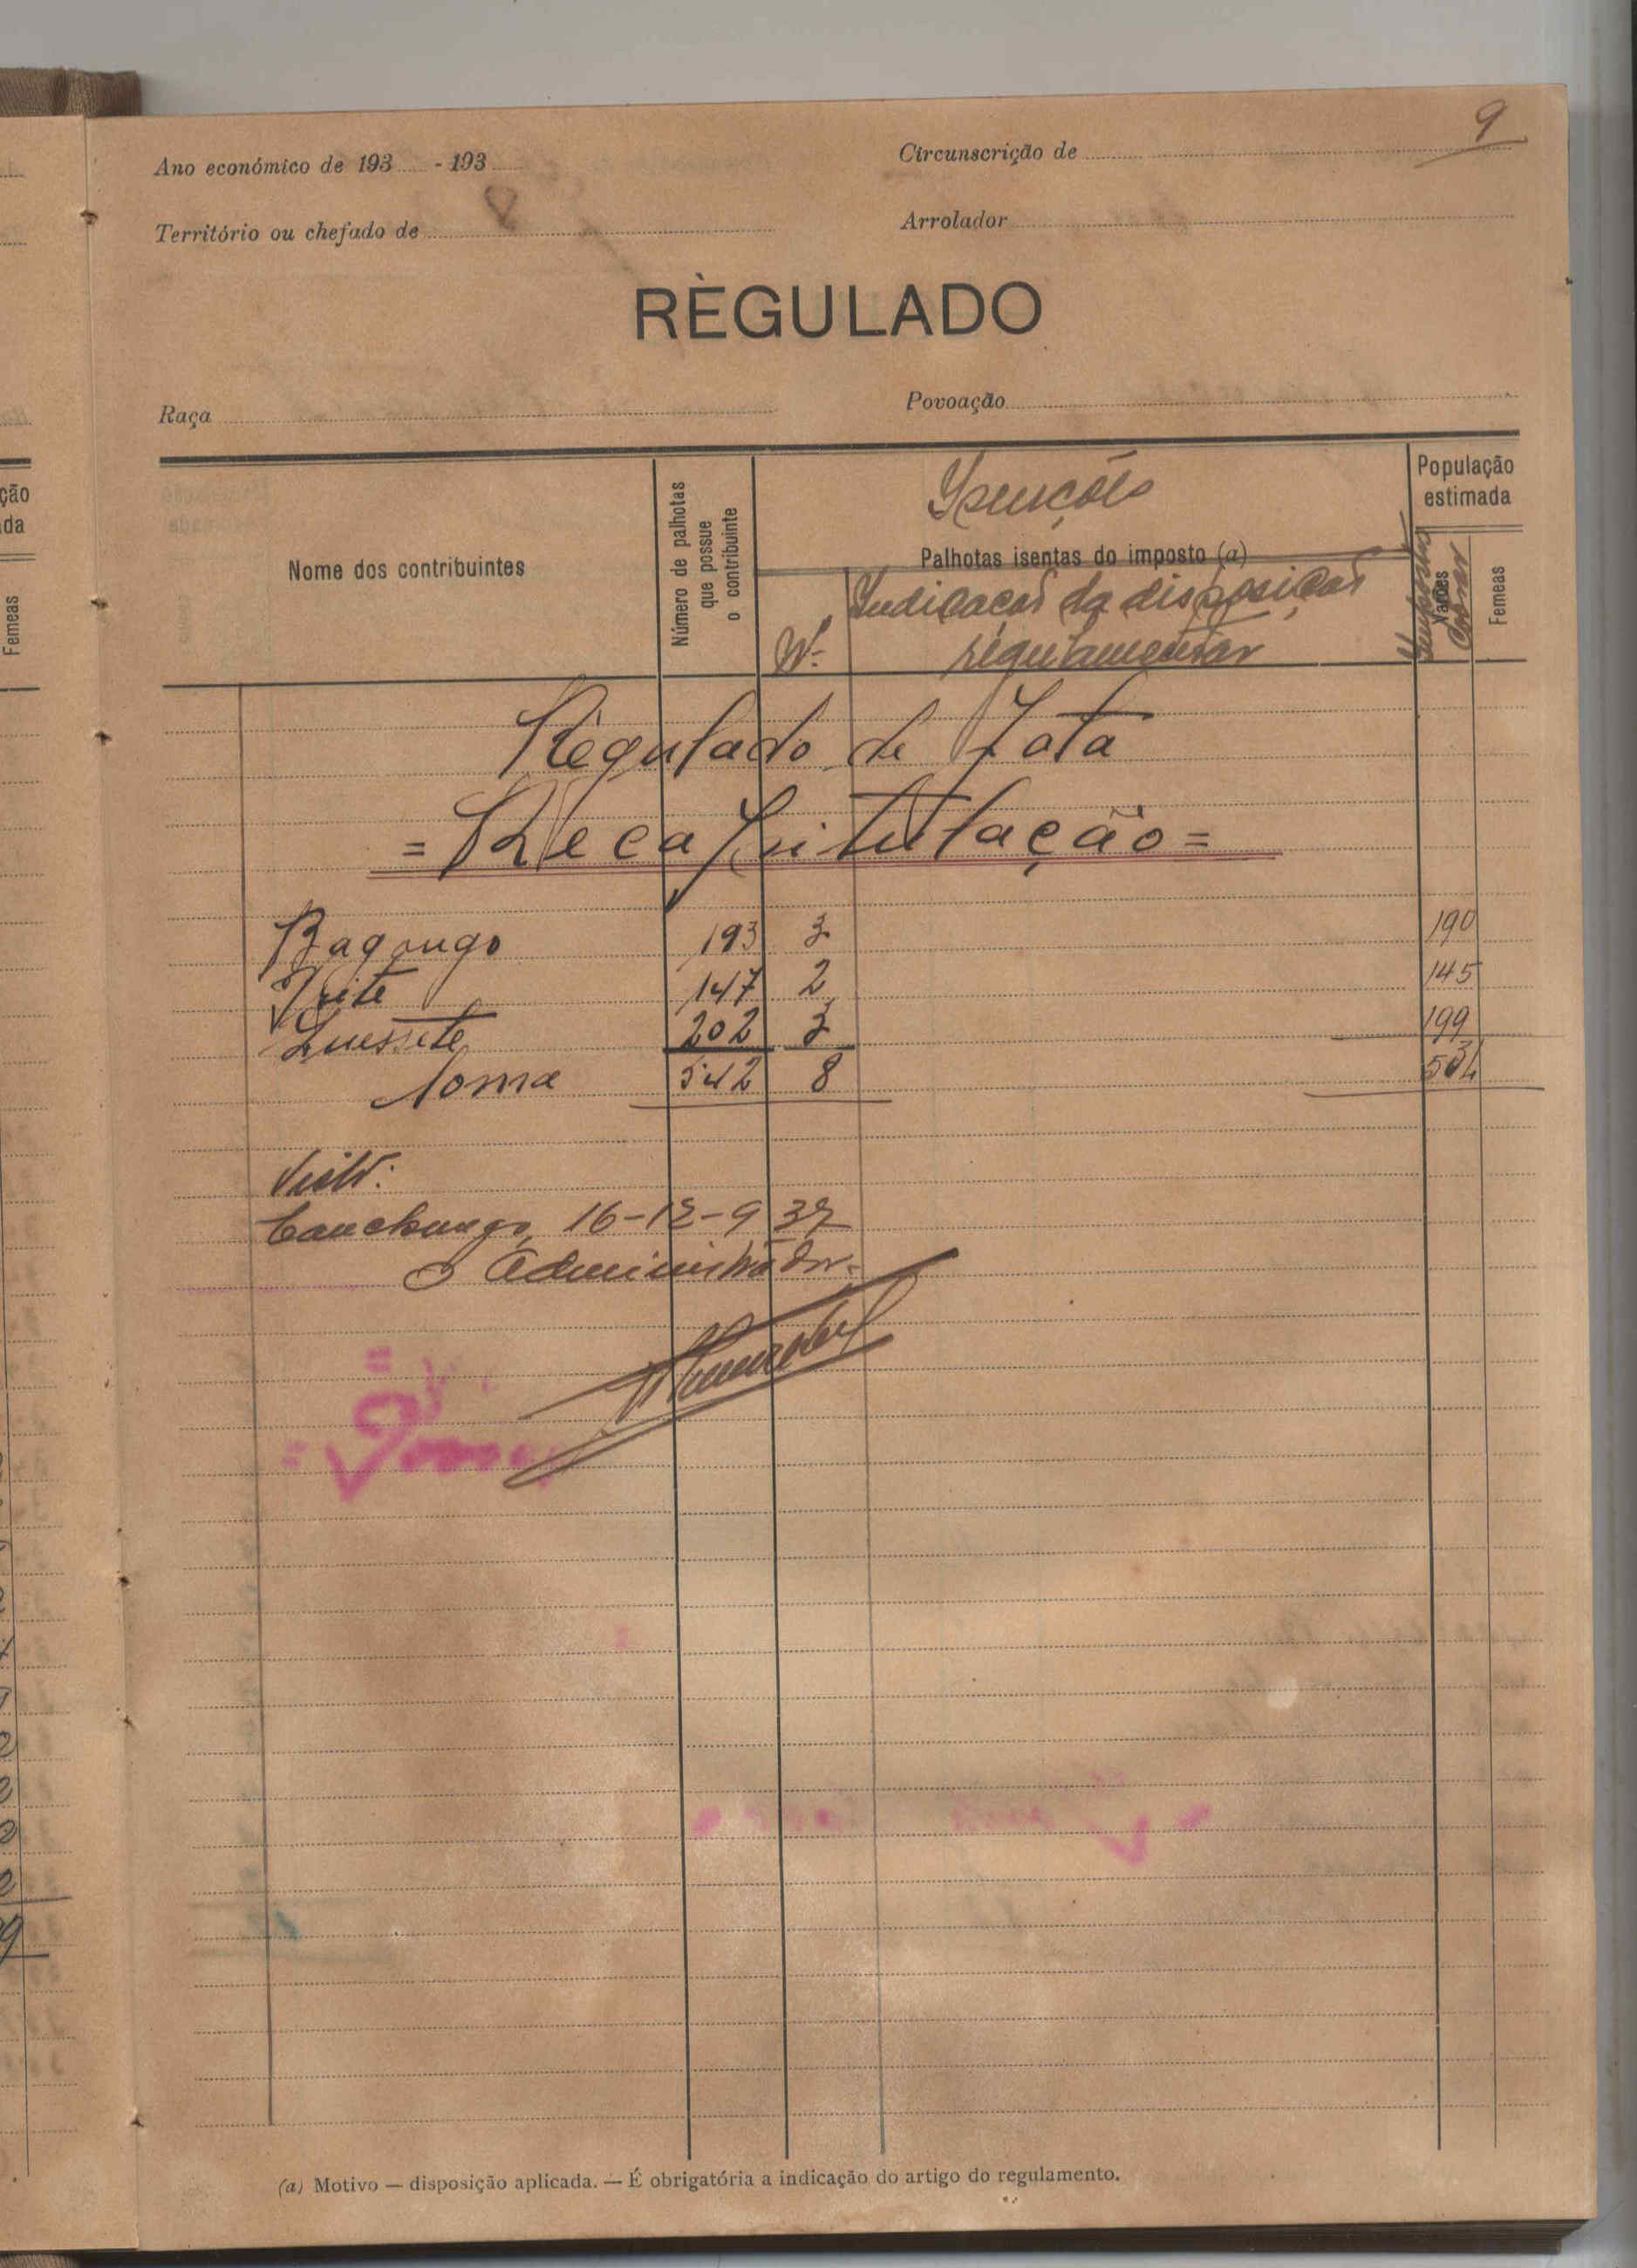 9
Ano económico de 193 - 193
Circunscrição de
Território ou chefado de
Arrolador
RÈGULADO
Raça
Povoação
Nome dos contribuintes
Número de palhotas que possue o contribuinte
Isenções
Palhotas isentas do imposto (a)
Nº
Indicação da disposição
regulamentar
População estimada
Imposto a cobrar
Varões
Femeas
Règulado de Tata
= Recapitulação =
Bagongo 193 3 190
147 2 145
202 3 199
Soma 542 8 534
Visto:
Canchungo, 16-12-937
O Administrador.
(a) Motivo — disposição aplicada. — É obrigatória a indicação do artigo do regulamento.
ção
da
Femeas